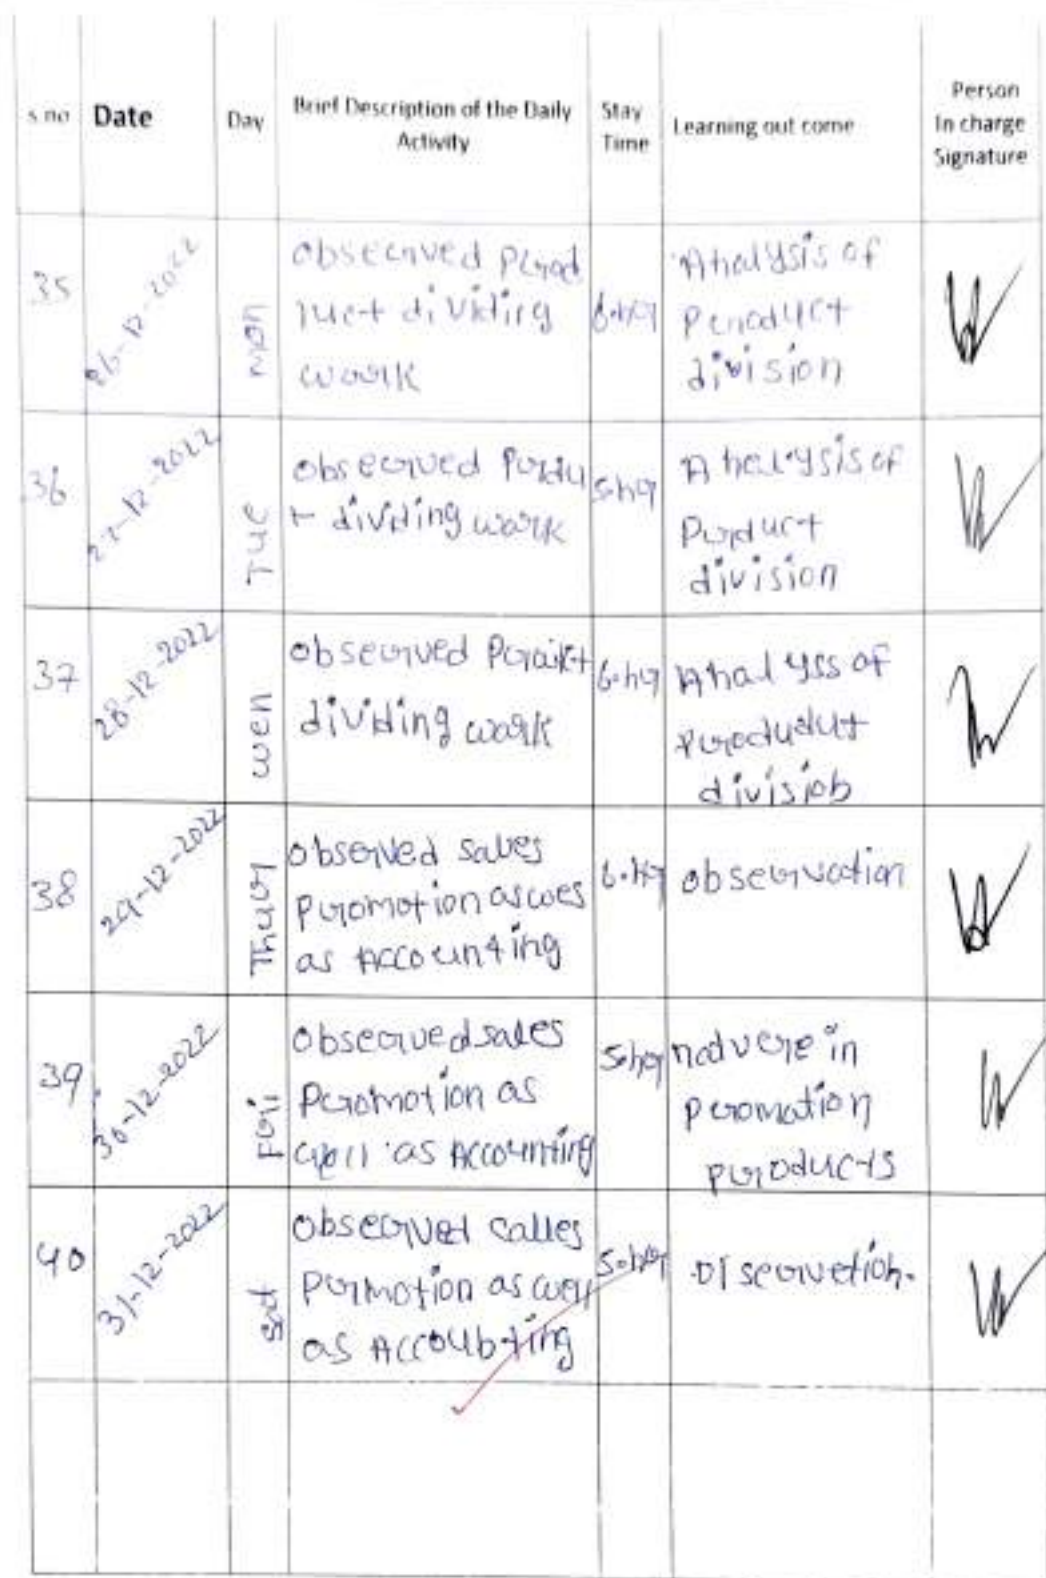 s.no Date Day Brief Description of the Daily Activity Stay Time Learning out come Person In charge Signature
35 26-12-2022 Mon
observed Prod
uct dividing
work
6-hr
Analysis of
Product
division
36 27-12-2022 Tue
observed Produ
t dividing work
5-hr
Analysis of
Product
division
37 28-12-2022 wen
observed
dividing work
6-hr
Analyss of
Produduct
divisiob
38 29-12-2022 Thur
observed sales
Promotion as woes
as Accounting
6-hr
observation
39 30-12-2022 Fri
observed sales
Promotion as
well as Accounting
5-hr
in
promation
products
40 31-12-2022 sat
observed calles
Prmotion as well
as Accoubting
5-hr